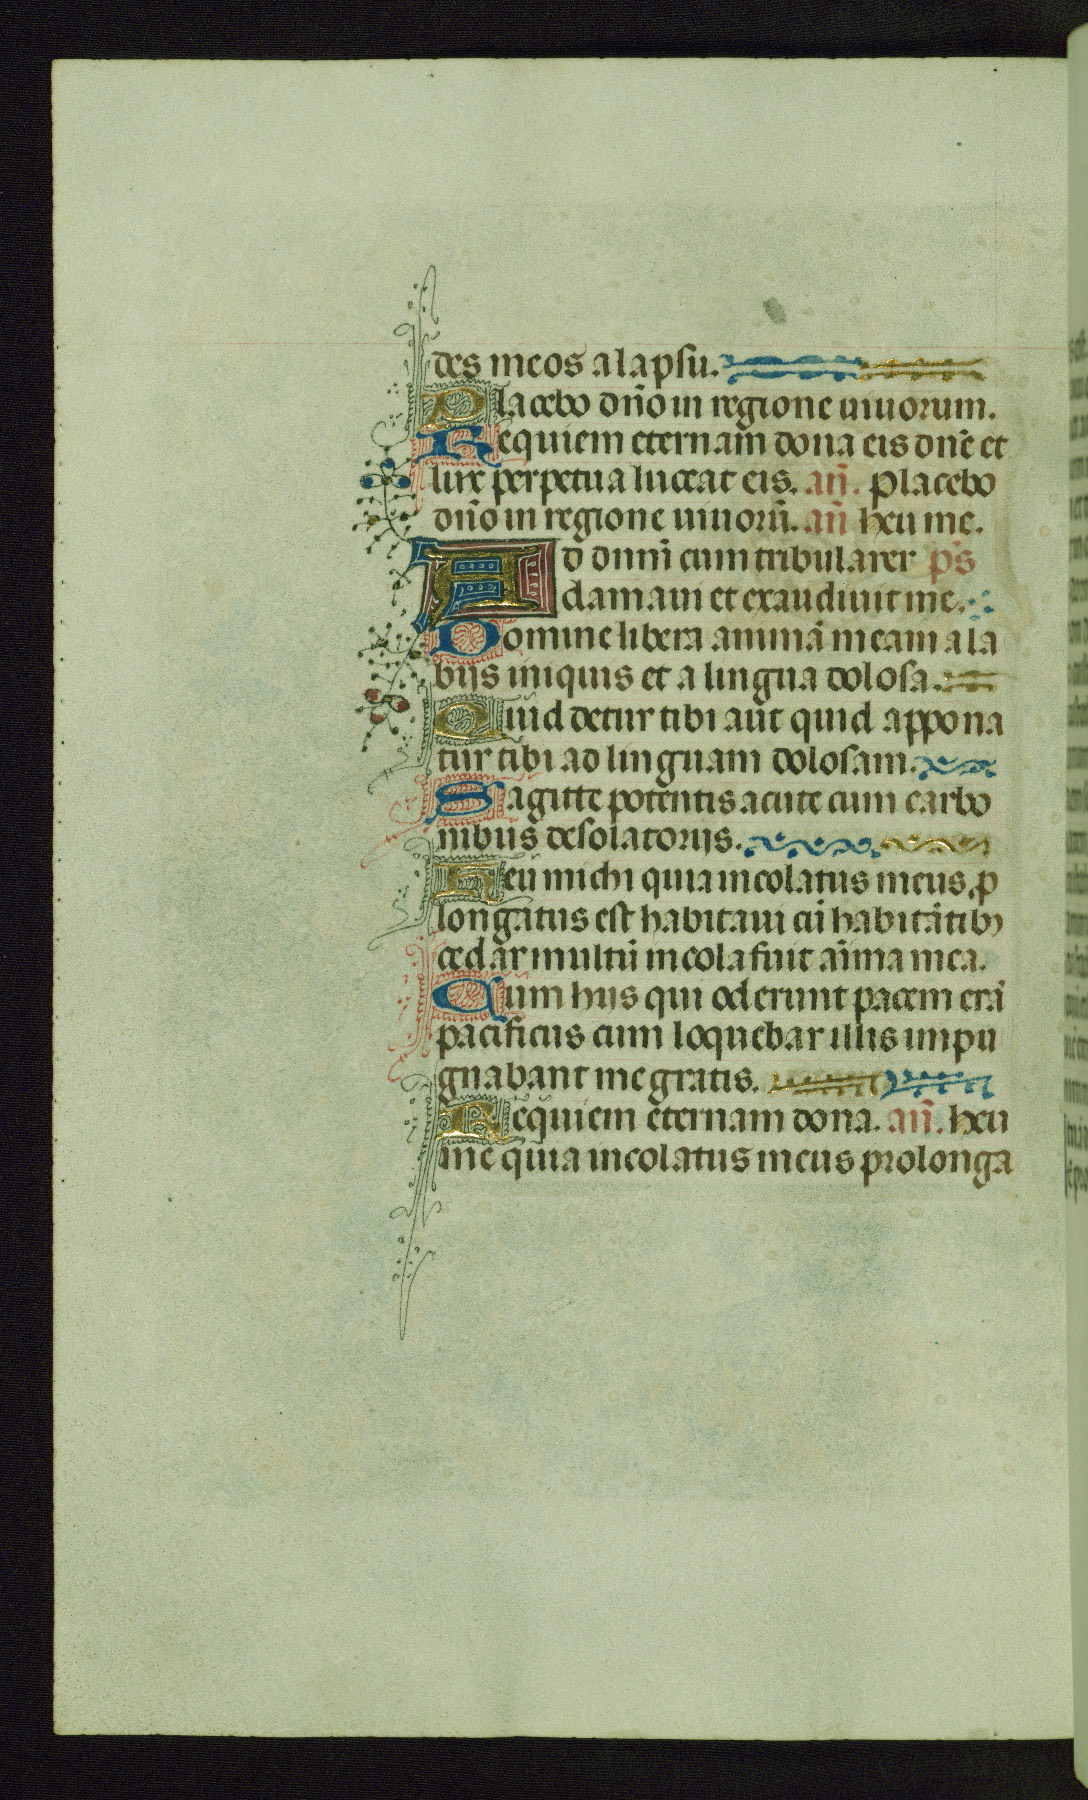 des meos a lapsu.
Placebo dño in regione uiuorum.
Requiem eternam dona eis dñe et
lux perpetua luceat eis. añ. Placebo
dño in regione uiuorũ. añ heu me.
AD dnm̃ cum tribularer p̃s
clamaui et exaudiuit me.
Domine libera animã meam a la
bijs iniquis et a lingua dolosa.
Quid detur tibi aut quid appona
tur tibi ad linguam dolosam.
Sagitte potentis acute cum carbo
nibus desolatorijs.
Heu michi quia incolatus meus ꝓ
longatus est habitaui cũ habitãtibꝫ
cedar multũ incola fuit aĩma mea.
Cum hiis qui oderunt pacem erã
pacificus cum loquebar illis impu
gnabant me gratis.
Requiem eternam dona. añ. heu
me quia incolatus meus prolonga